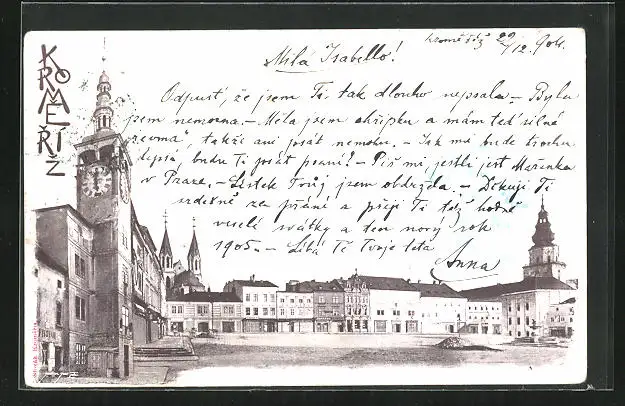 KROMĚŘÍŽ
Kroměříž 29/12. 904.
Milá Isabello!
Odpusť, že jsem Ti tak dlouho nepsala. – Byla
jsem nemocna. – Měla jsem chřipku a mám teď silné
"revma", takže ani psát nemohu. – Jak mi bude trochu
lépe, budu Ti psát psaní! – Piš mi, jestli jest Mařenka
v Praze. – Lístek Tvůj jsem obdržela. – Děkuji Ti
srdečně za přání a přeji Ti též hodně
veselé svátky a ten nový rok
1905. – Líbá Tě Tvoje teta
Anna